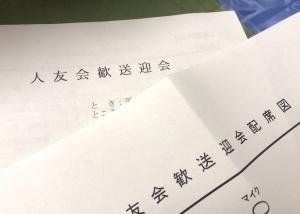 人友会歓送迎会
とき：
ところ
友会歓送迎会配席図
マイク